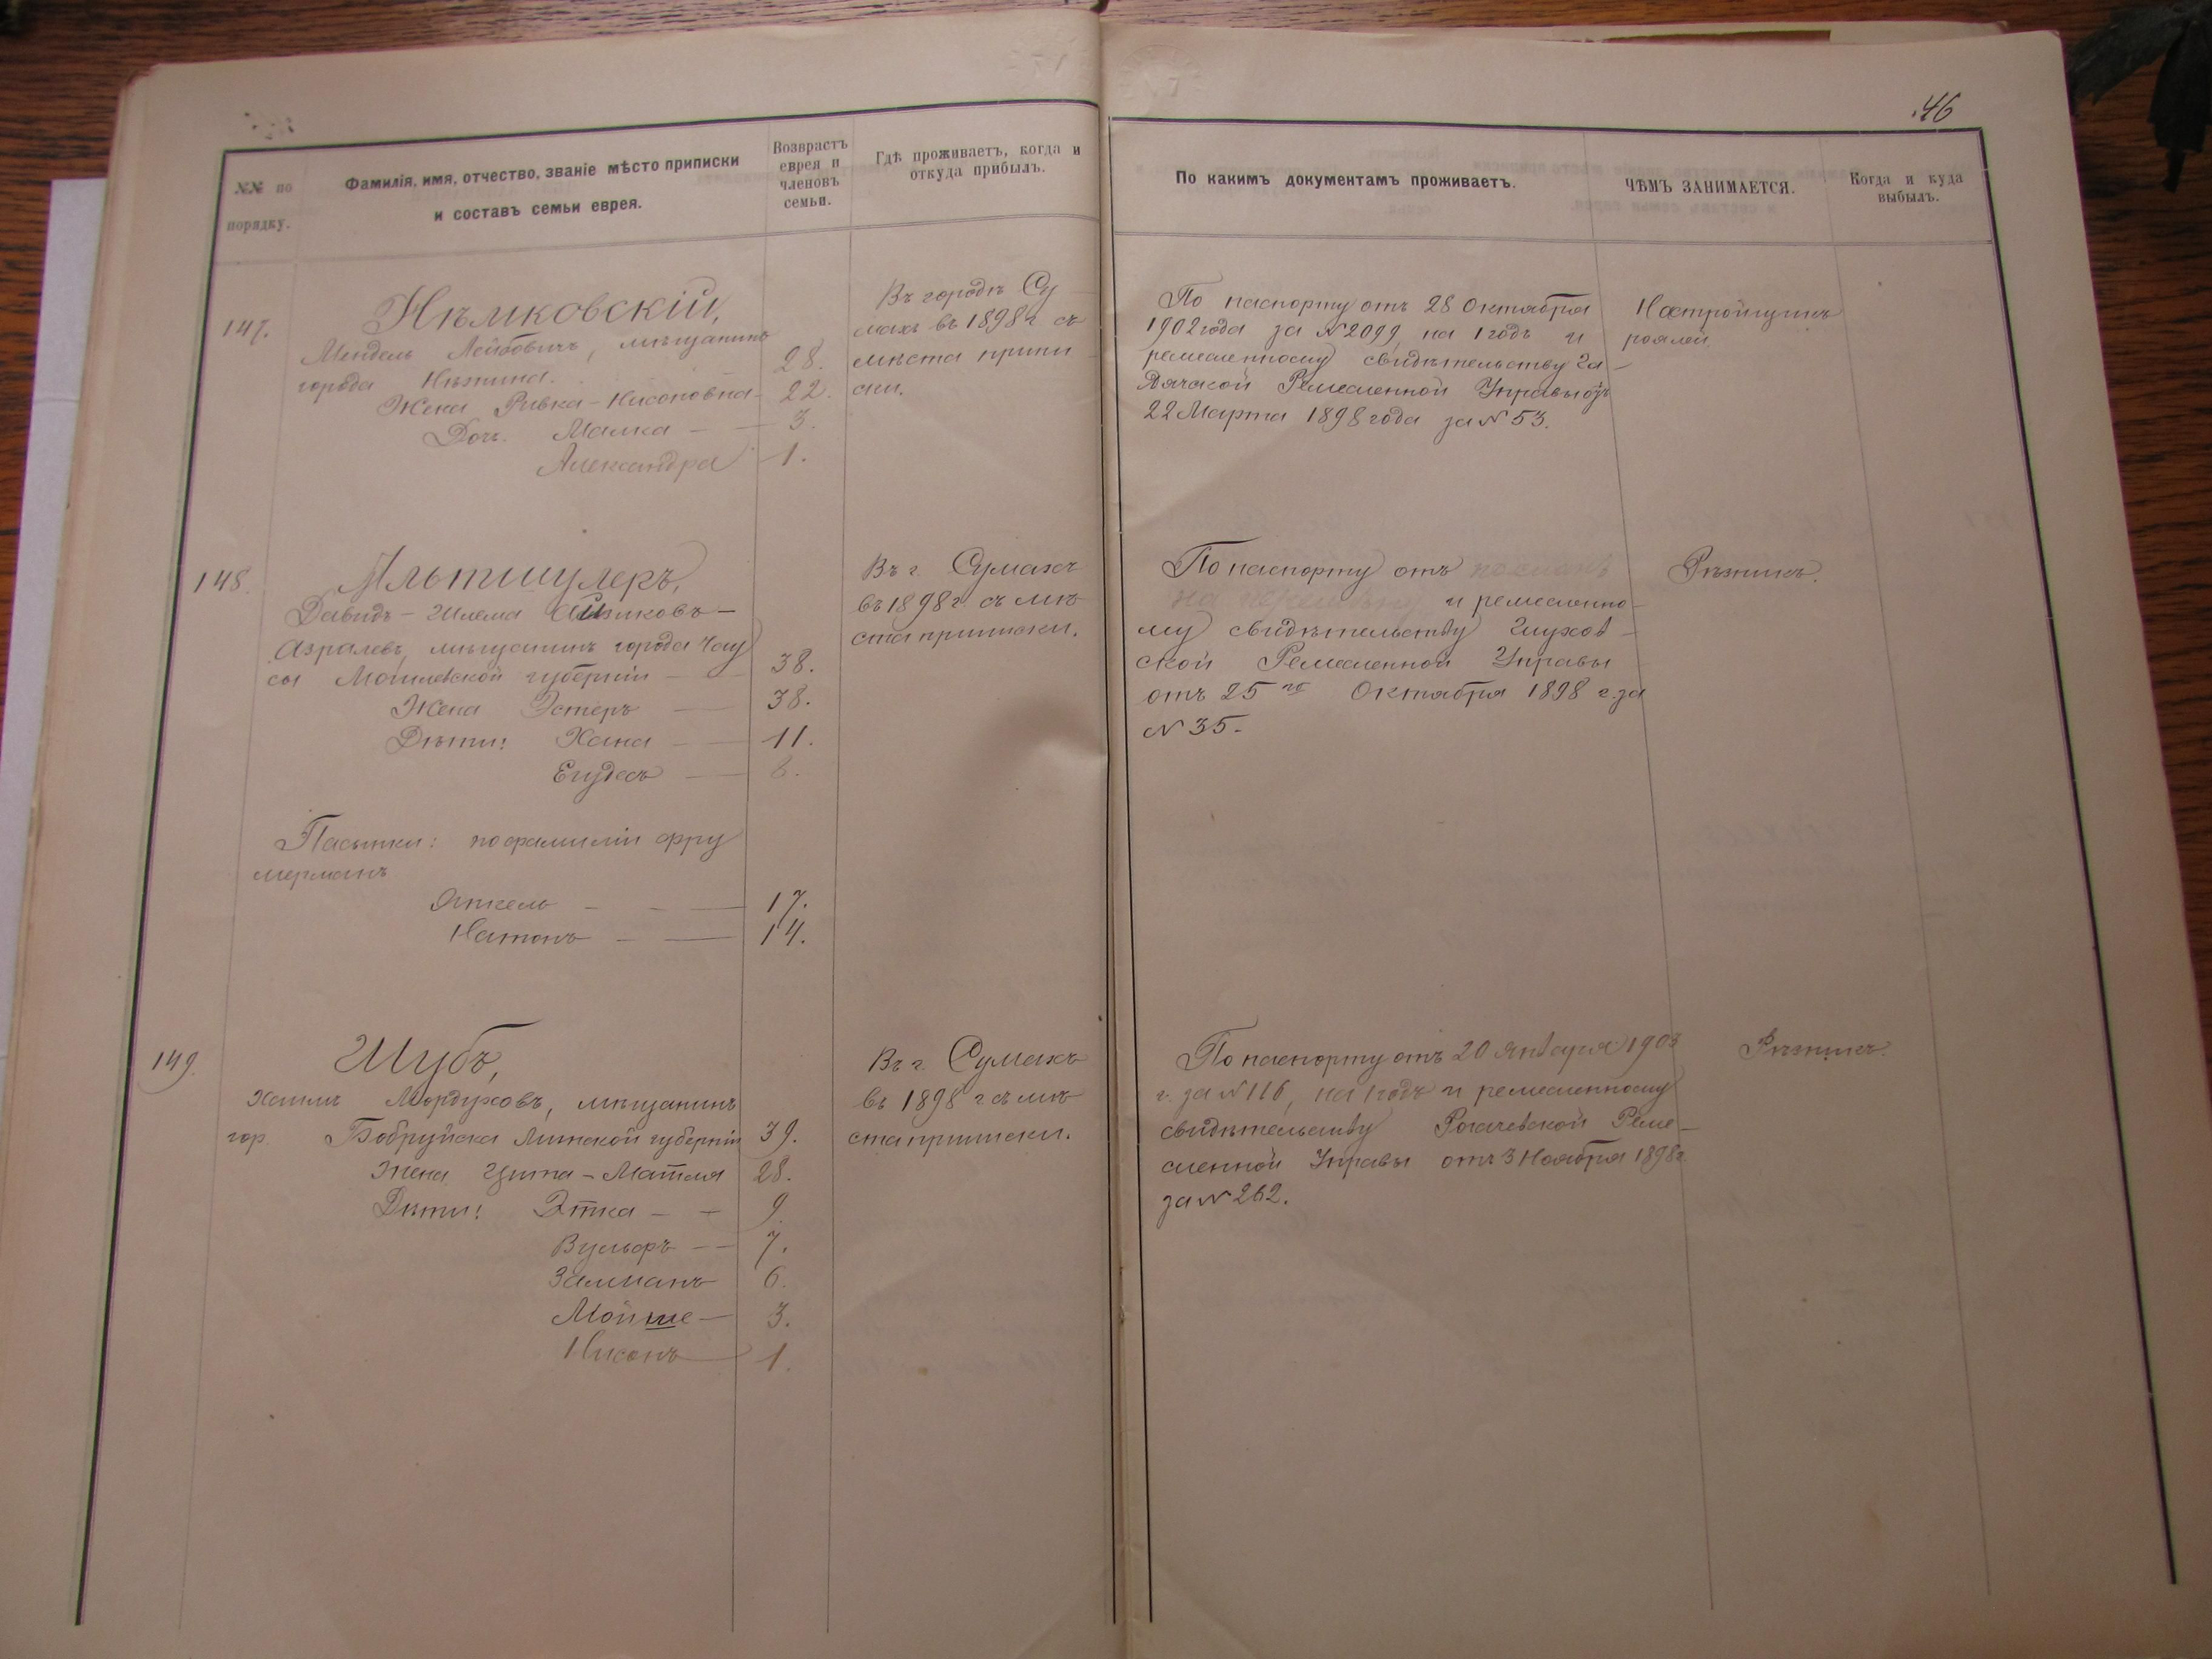 46
№№ по
порядку.
Фамилія, имя, отчество, званіе мѣсто приписки
и составъ семьи еврея.
Возврастъ
еврея и
членовъ
семьи.
Гдѣ проживаетъ, когда и
откуда прибылъ.
По какимъ документамъ проживаетъ.
ЧѢМЪ ЗАНИМАЕТСЯ.
Когда и куда
выбылъ.
147.
Нѣмковскій,
Мендель Лейбовичъ, мѣщанинъ
города Нѣжина. 28.
Жена Ривка-Нисоновна- 22.
Доч. Малка - - 3.
Александра 1.
Въ городѣ Су
махъ въ 1898 г. съ
мѣста припи
ски.
По паспорту отъ 28 Октября
1902 года за №2099, на 1 годъ и
ремесленному свидѣтельству Га-
дячской Ремесленной Управы отъ
22 Марта 1898 года за № 53.
Настройщикъ
роялей.
148.
Альтшулеръ,
Давидъ-Шлема
мѣщанинъ города Чау
сы Могилевской губерніи - 38.
Жена Эстеръ - 38.
Дѣти: Хана - 11.
Егудесъ - 6.
Пасынки: по фамиліи Фру
мерманъ
Янкель - - - 17.
Натонъ - - 14.
Въ г. Сумахъ
въ 1898 г. съ мѣ
ста приписки.
По паспорту отъ
и ремесленно-
му свидѣтельству Глухов-
ской Ремесленной Управы
отъ 25 го Октября 1898 г. за
№ 35.-
Рѣзникъ.
149.
Шубъ,
Хаимъ Мордуховъ, мѣщанинъ
гор. Бобруйска Минской губерніи 39.
Жена Цита-Матля 28.
Дѣти: Этка - - 9.
Вульфъ - - 7.
Залманъ 6.
Мойше - 3.
Нисонъ 1.
Въ г. Сумахъ
въ 1898 г. съ мѣ
ста приписки.
По паспорту отъ 20 Января 1903
г. за №116, на 1 годъ и ремесленному
свидѣтельству Рогачевской Реме-
сленной Управы отъ 3 Ноября 1898 г.
за № 262.
Рѣзникъ.